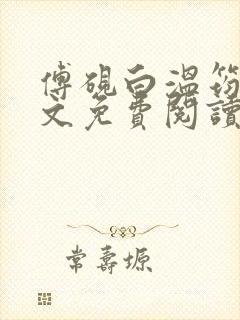 傅硯白溫筠
文免費閱讀
常壽塬